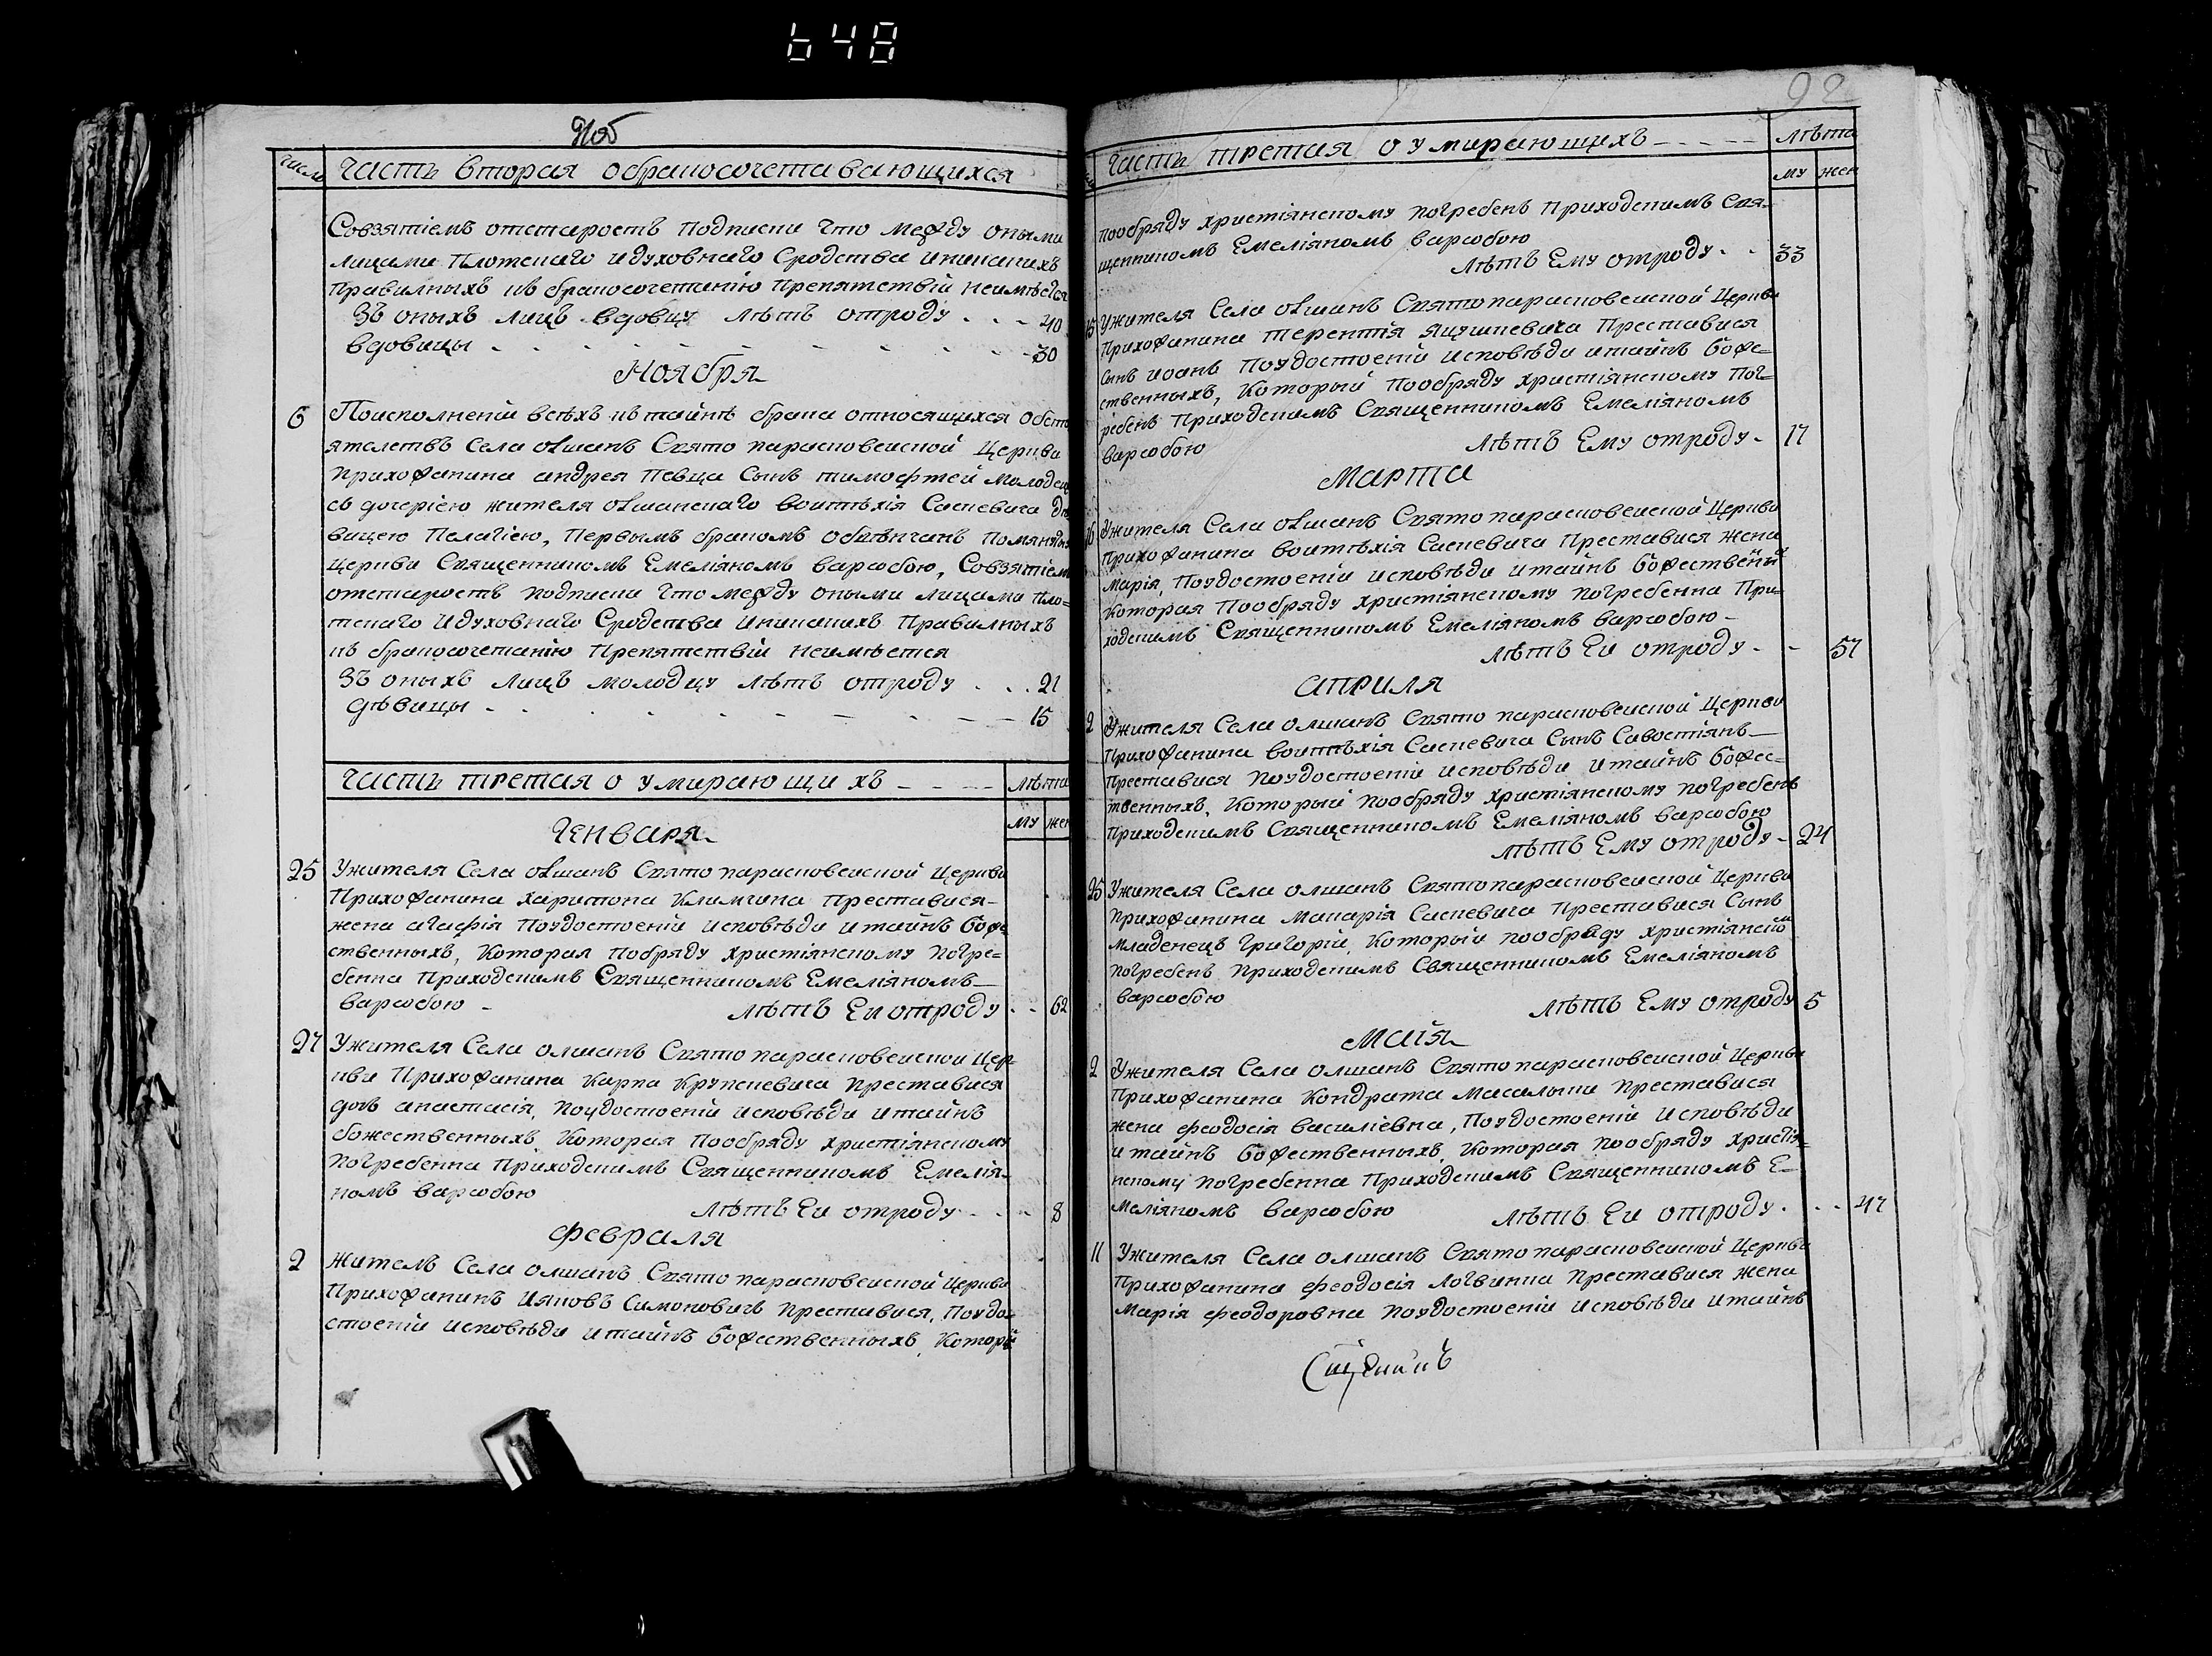 648
91об
числа Часть вторая обракосочетавающихся
Совзятіемъ отстаростъ подписки что между оными
лицами плотскаго идуховнаго Сродства иникакихъ
правилныхъ къ бракосочетанію препятствій неимѣется
Зъ оныхъ лицъ вдовцу лѣтъ отроду . . - 40
вдовицы - - - - - - - 30
Ноября
6 Поисполненіи всѣхъ къ тайнѣ брака относящихся обсто
ятелствъ Села олшанъ Свято парасковейской Церкви
прихожанина андрея Певца Сынъ тимофтей молодец
съ дочерію жителя олшанскаго воитѣхія Саскевича дѣ
вицею Пелагіею, первымъ бракомъ обвѣнчанъ помянутыя
Церкви Священникомъ Емеліяномъ варжобою, Совзятіем
отстаростъ подписки что между оными лицами пло=
тскаго идуховнаго Сродства иникакихъ правилныхъ
къ бракосочетанію препятствій неимѣется
Зъ оныхъ лицъ молодцу лѣтъ отроду . . . 21
дѣвицы - - - - - - - 15
Часть третая о умирающихъ - - - - лѣта
му жен
Генваря
25 Ужителя Села олшанъ Свято парасковейской Церкви
Прихожанина харитона Климчина преставися
жена агафія Поудостоеніи исповѣди итайнъ боже
ственныхъ, Которая пообряду христіянскому погре=
бенна приходскимъ Священникомъ Емеліяномъ
варжобою - лѣтъ Еи отроду . - 62
27 Ужителя Села олшанъ Свято парасковейской Цер
кви Прихожанина Карпа Крупскевича преставися
дочь анастасія, поудостоеніи исповѣди итайнъ
божественныхъ Которая пообряду христіянскому
погребенна приходскимъ Священникомъ Емелія=
номъ варжобою лѣтъ Еи отроду - - - 8
Февраля
2 Житель Села олшанъ Свято парасковейской Церкви
Прихожанинъ Ияковъ Симоновичъ преставися, Поудо=
стоеніи исповѣди итайнъ божественныхъ, Которій
92
Часть третая о умирающихъ - - - - - лѣта
му жен
пообряду христіянскому погребенъ Приходскимъ Свя=
щенникомъ Емеліяномъ варжобою
лѣтъ Ему отроду - - 33
15 Ужителя Села олшанъ Свято парасковейской Церкви
Прихожанина терентія Яцушкевича Преставися
Сынъ иоанъ Поудостоеніи исповѣди итайнъ боже=
ственныхъ, Который пообряду христіянскому пог=
ребенъ Приходскимъ Священникомъ Емеліяномъ
варжобою лѣтъ Ему отроду - 17
Марта
16 Ужителя Села олшанъ Свято парасковейской Церкви
Прихожанина воитѣхія Саскевича Преставися жена
марія, Поудостоеніи исповѣди итайнъ божественных
Которая Пообряду христіянскому погребенна при=
ходскимъ Священникомъ Емеліяномъ варжобою -
лѣтъ Еи отроду - - 57
априля
2 Ужителя Села олшанъ Свято парасковейской Церкви
Прихожанина воитѣхія Саскевича Сынъ Савостіянъ
преставися Поудостоеніи исповѣди итайнъ божес=
твенныхъ, Который пообряду христіянскому погребенъ
Приходскимъ Священникомъ Емеліяномъ варжобою
лѣтъ Ему отроду - 24
25 Ужителя Села олшанъ Святопарасковейской Церкви
прихожанина Макарія Саскевича преставися Сынъ
младенецъ Григорій, Который пообряду христіянском
погребенъ приходскимъ Священникомъ Емеліяномъ
варжобою лѣтъ Ему отроду 5
Майя
2 Ужителя Села олшанъ Святопарасковейской Церкви
Прихожанина Кондрата Масалыки преставися
жена феодосія василіевна, Поудостоеніи исповѣди
итайнъ божественныхъ Которая пообряду христія=
нскому погребенна Приходскимъ Священникомъ Е=
меліяномъ варжобою лѣтъ Еи отроду . . . 47
11 Ужителя Села олшанъ Свято парасковейской Церкви
Прихожанина феодосія Логвинна преставися жена
марія феодоровна поудостоеніи исповѣди итайнъ